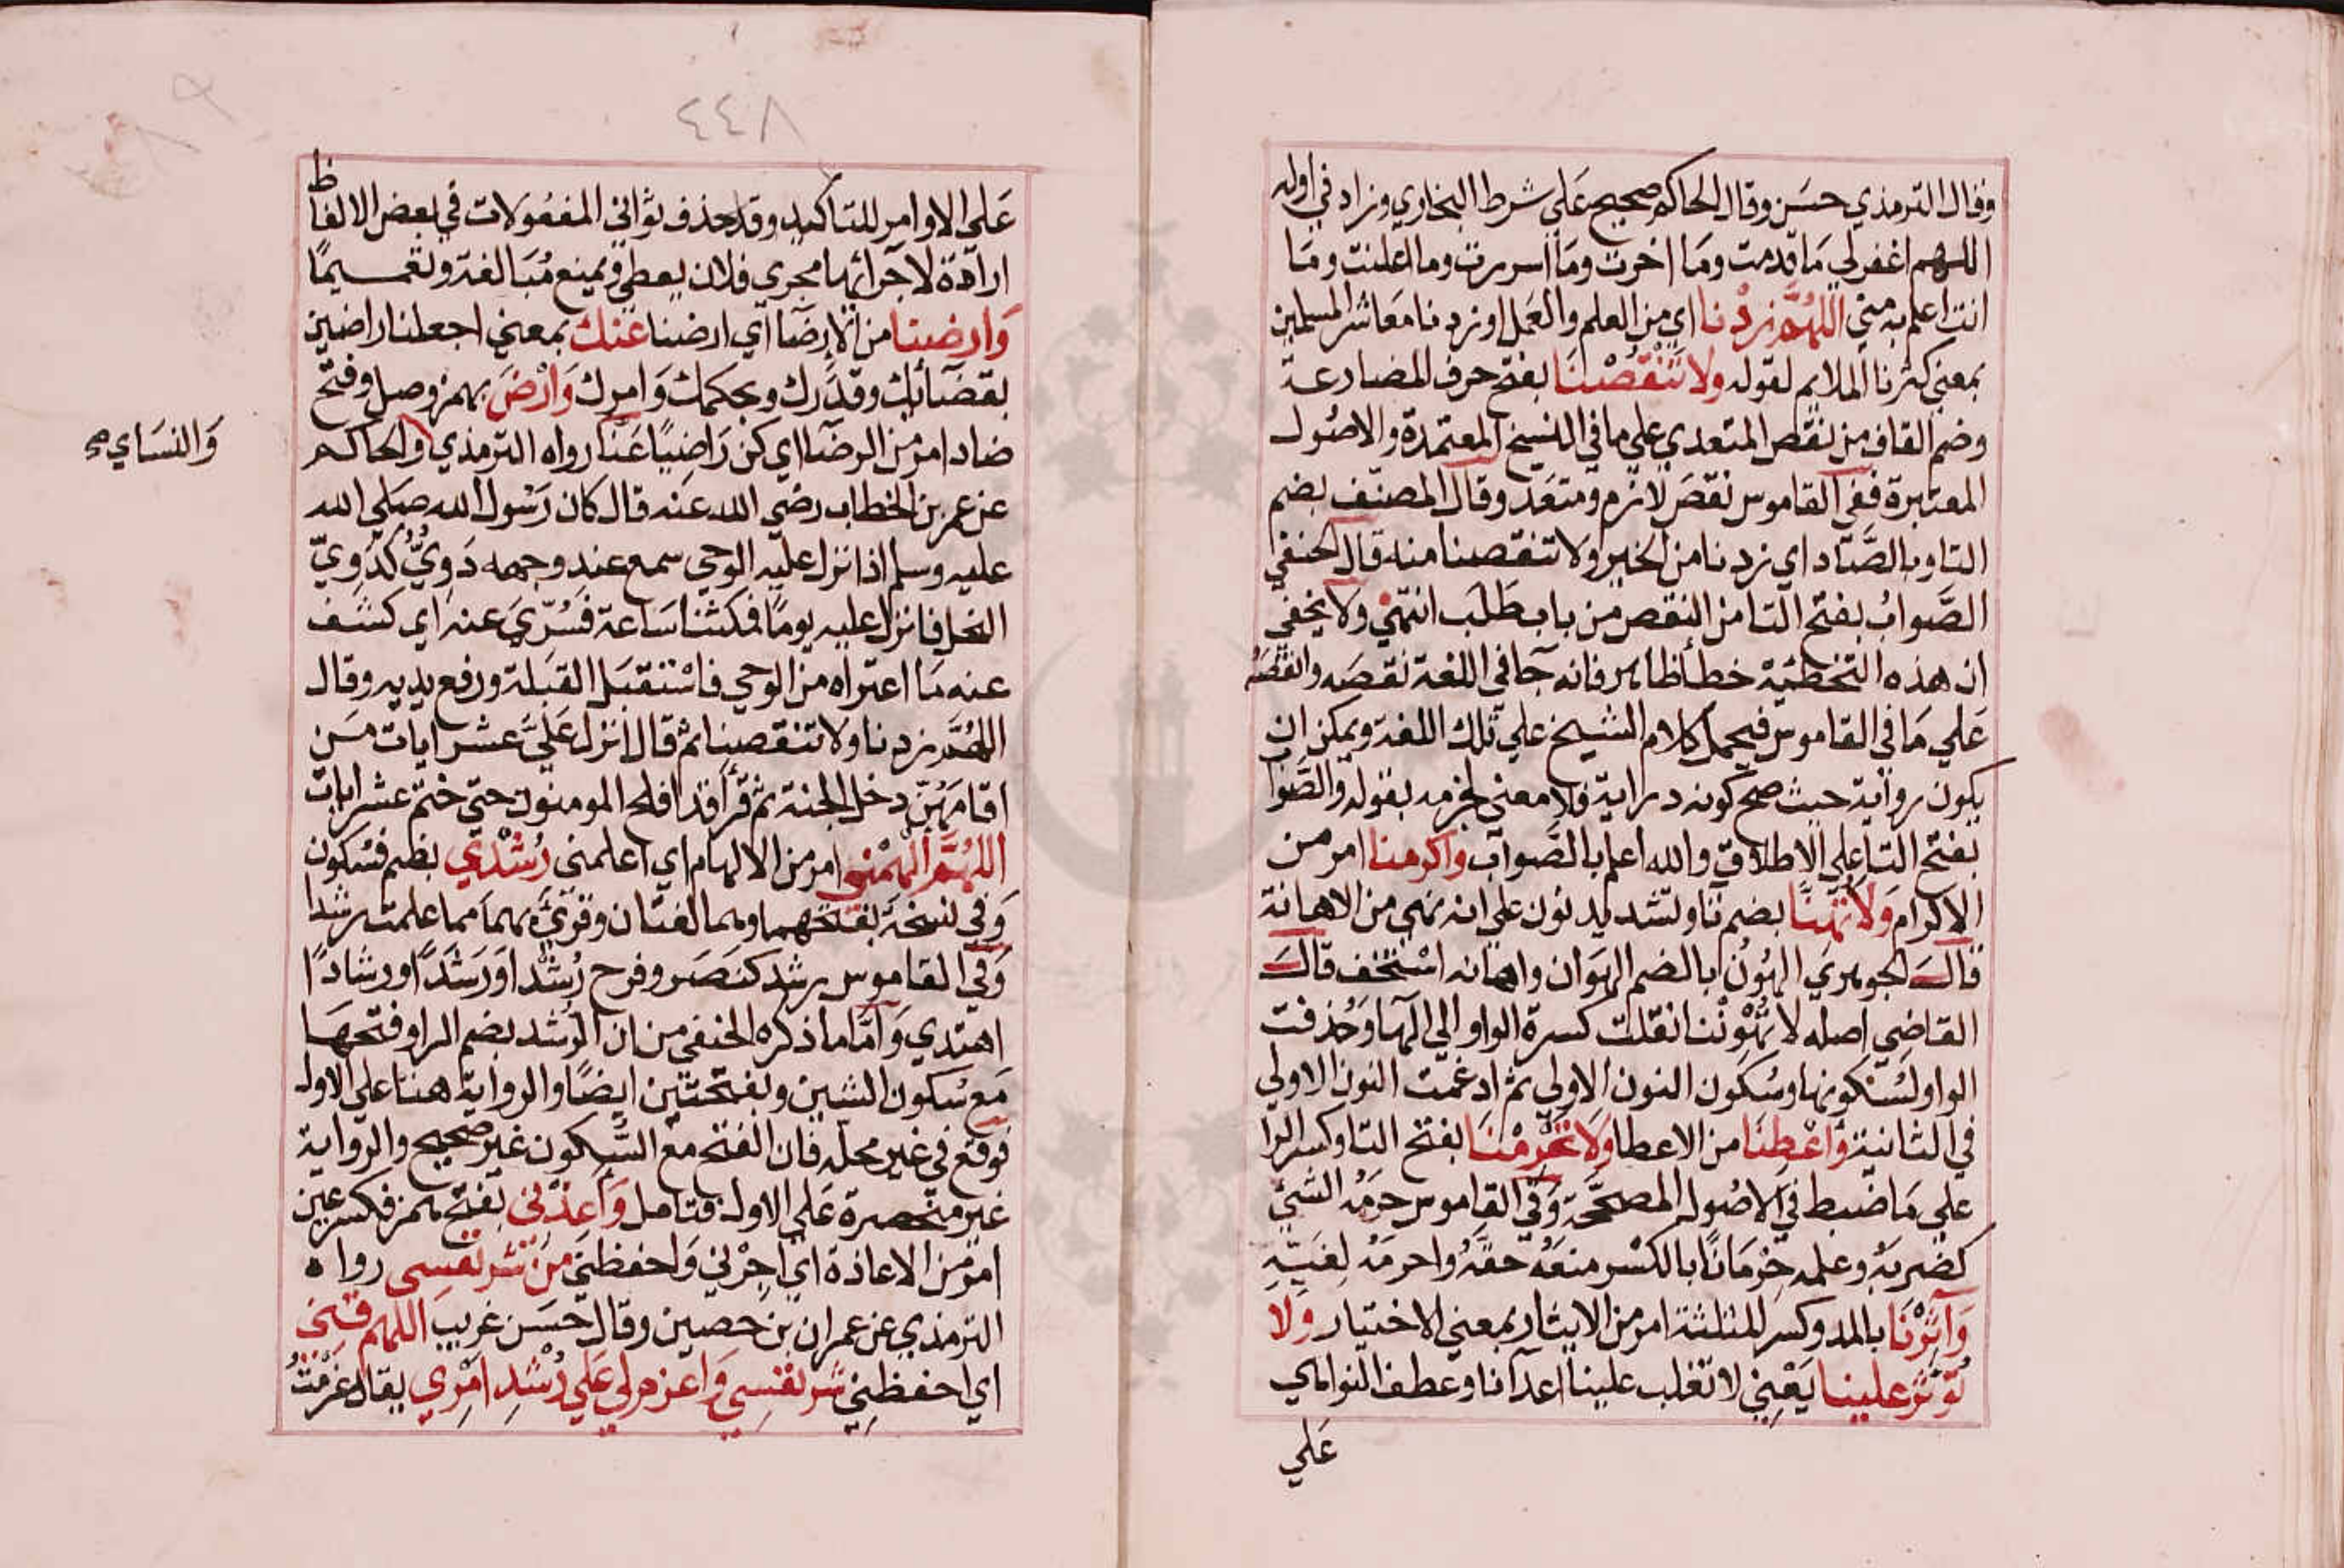 وقال الترمذي حسن وقال الحاكم صحيح علي شرط البخاري وزاد في اوله
اللهم اغفر لي ما قدمت وما اخرت وما اسررت وما اعلنت وما
انت اعلم به مني اللهم زدنا اي من العلم والعمل او زدنا معاشر المسلمين
بمعني كثرنا الملايم لقوله ولا تنقصنا بفتح حرف المضارعة
وضم القاف من نقص المتعدي علي ما في النسخ المعتمدة والاصول
المعتبرة ففي القاموس نقص لازم ومتعد وقال المصنف بضم
التا وبالصاد اي زدنا من الخير ولا تنقصنا منه قال الحنفي
الصواب بفتح التا من النقص من باب طلب انتهي ولا يخفي
ان هذه التخطئة خطأ ظاهر فانه جا في اللغة نقصه وانقصه
علي ما في القاموس فيحمل كلام الشيخ علي تلك اللغة ويمكن ان
يكون رواية حيث صح كونه دراية فلا معني لجزمه بقوله والصوا
بفتح التا علي الاطلاق والله اعلم بالصواب واكرمنا امر من
الاكرام ولا تهنا بضم تا وتشديد نون علي انه نهي من الاهانة
قال الجوهري الهون بالضم الهوان واهانه استخف قال
القاضي اصله لا تهوننا نقلت كسرة الواو الي الها وحذفت
الواو لسكونها وسكون النون الاولي ثم ادغمت النون الاولي
في الثانية واعطنا من الاعطا ولا تحرمنا بفتح التا وكسر الرا
علي ما ضبط في الاصول المصححة وفي القاموس حرمه الشئ
كضربه وعلمه حرمانا بالكسر منعه حقه واحرمه لغية
وآثرنا بالمد وكسر المثلثة امر من الايثار بمعني الاختيار ولا
تؤثر علينا يعني لا تغلب علينا اعدآنا وعطف النواهي
علي
٤٤٨
علي الاوامر للتاكيد وقد حذف ثواني المفعولات في بعض الالفاظ
ارادة لاجرائها مجري فلان يعطي ويمنع مبالغة وتعميما
وارضنا من الارضا اي ارضنا عنك بمعني اجعلنا راضين
بقضائك وقدرك وبحكمك وامرك وارض بهمز وصل وفتح
ضاد امر من الرضا اي كن راضيا عنا رواه الترمذي والحاكم
والنساي صح
عن عمر بن الخطاب رضي الله عنه قال كان رسول الله صلي الله
عليه وسلم اذا نزل عليه الوحي سمع عند وجهه دوي كدوي
النحل فانزل عليه يوما فمكثنا ساعة فسري عنه اي كشف
عنه ما اعتراه من الوحي فاستقبل القبلة ورفع يديه وقال
اللهم زدنا ولا تنقصنا ثم قال انزل علي عشر ايات من
اقامهن دخل الجنة ثم قرأ قد افلح المومنون حتي ختم عشر ايات
اللهم الهمني امر من الالهام اي اعلمني رشدي بضم فسكون
وفي نسخة بفتحهما وهما لغتان وقرئ بهما مما علمت رشدا
وفي القاموس رشد كنصر وفرح رشدا ورشدا ورشادا
اهتدي واما ما ذكره الحنفي من ان الرشد بضم الرا وفتحها
مع سكون الشين وبفتحتين ايضا والرواية هنا علي الاول
فوقع في غير محله فان الفتح مع السكون غير صحيح والرواية
غير منحصرة علي الاول فتامل واعذني بفتح همز فكسر عين
امر من الاعاذة اي اجرني واحفظني من شر نفسي رواه
الترمذي عن عمران بن حصين وقال حسن غريب اللهم قني
اي احفظني شر نفسي واعزم لي علي رشد امري يقال عزمت